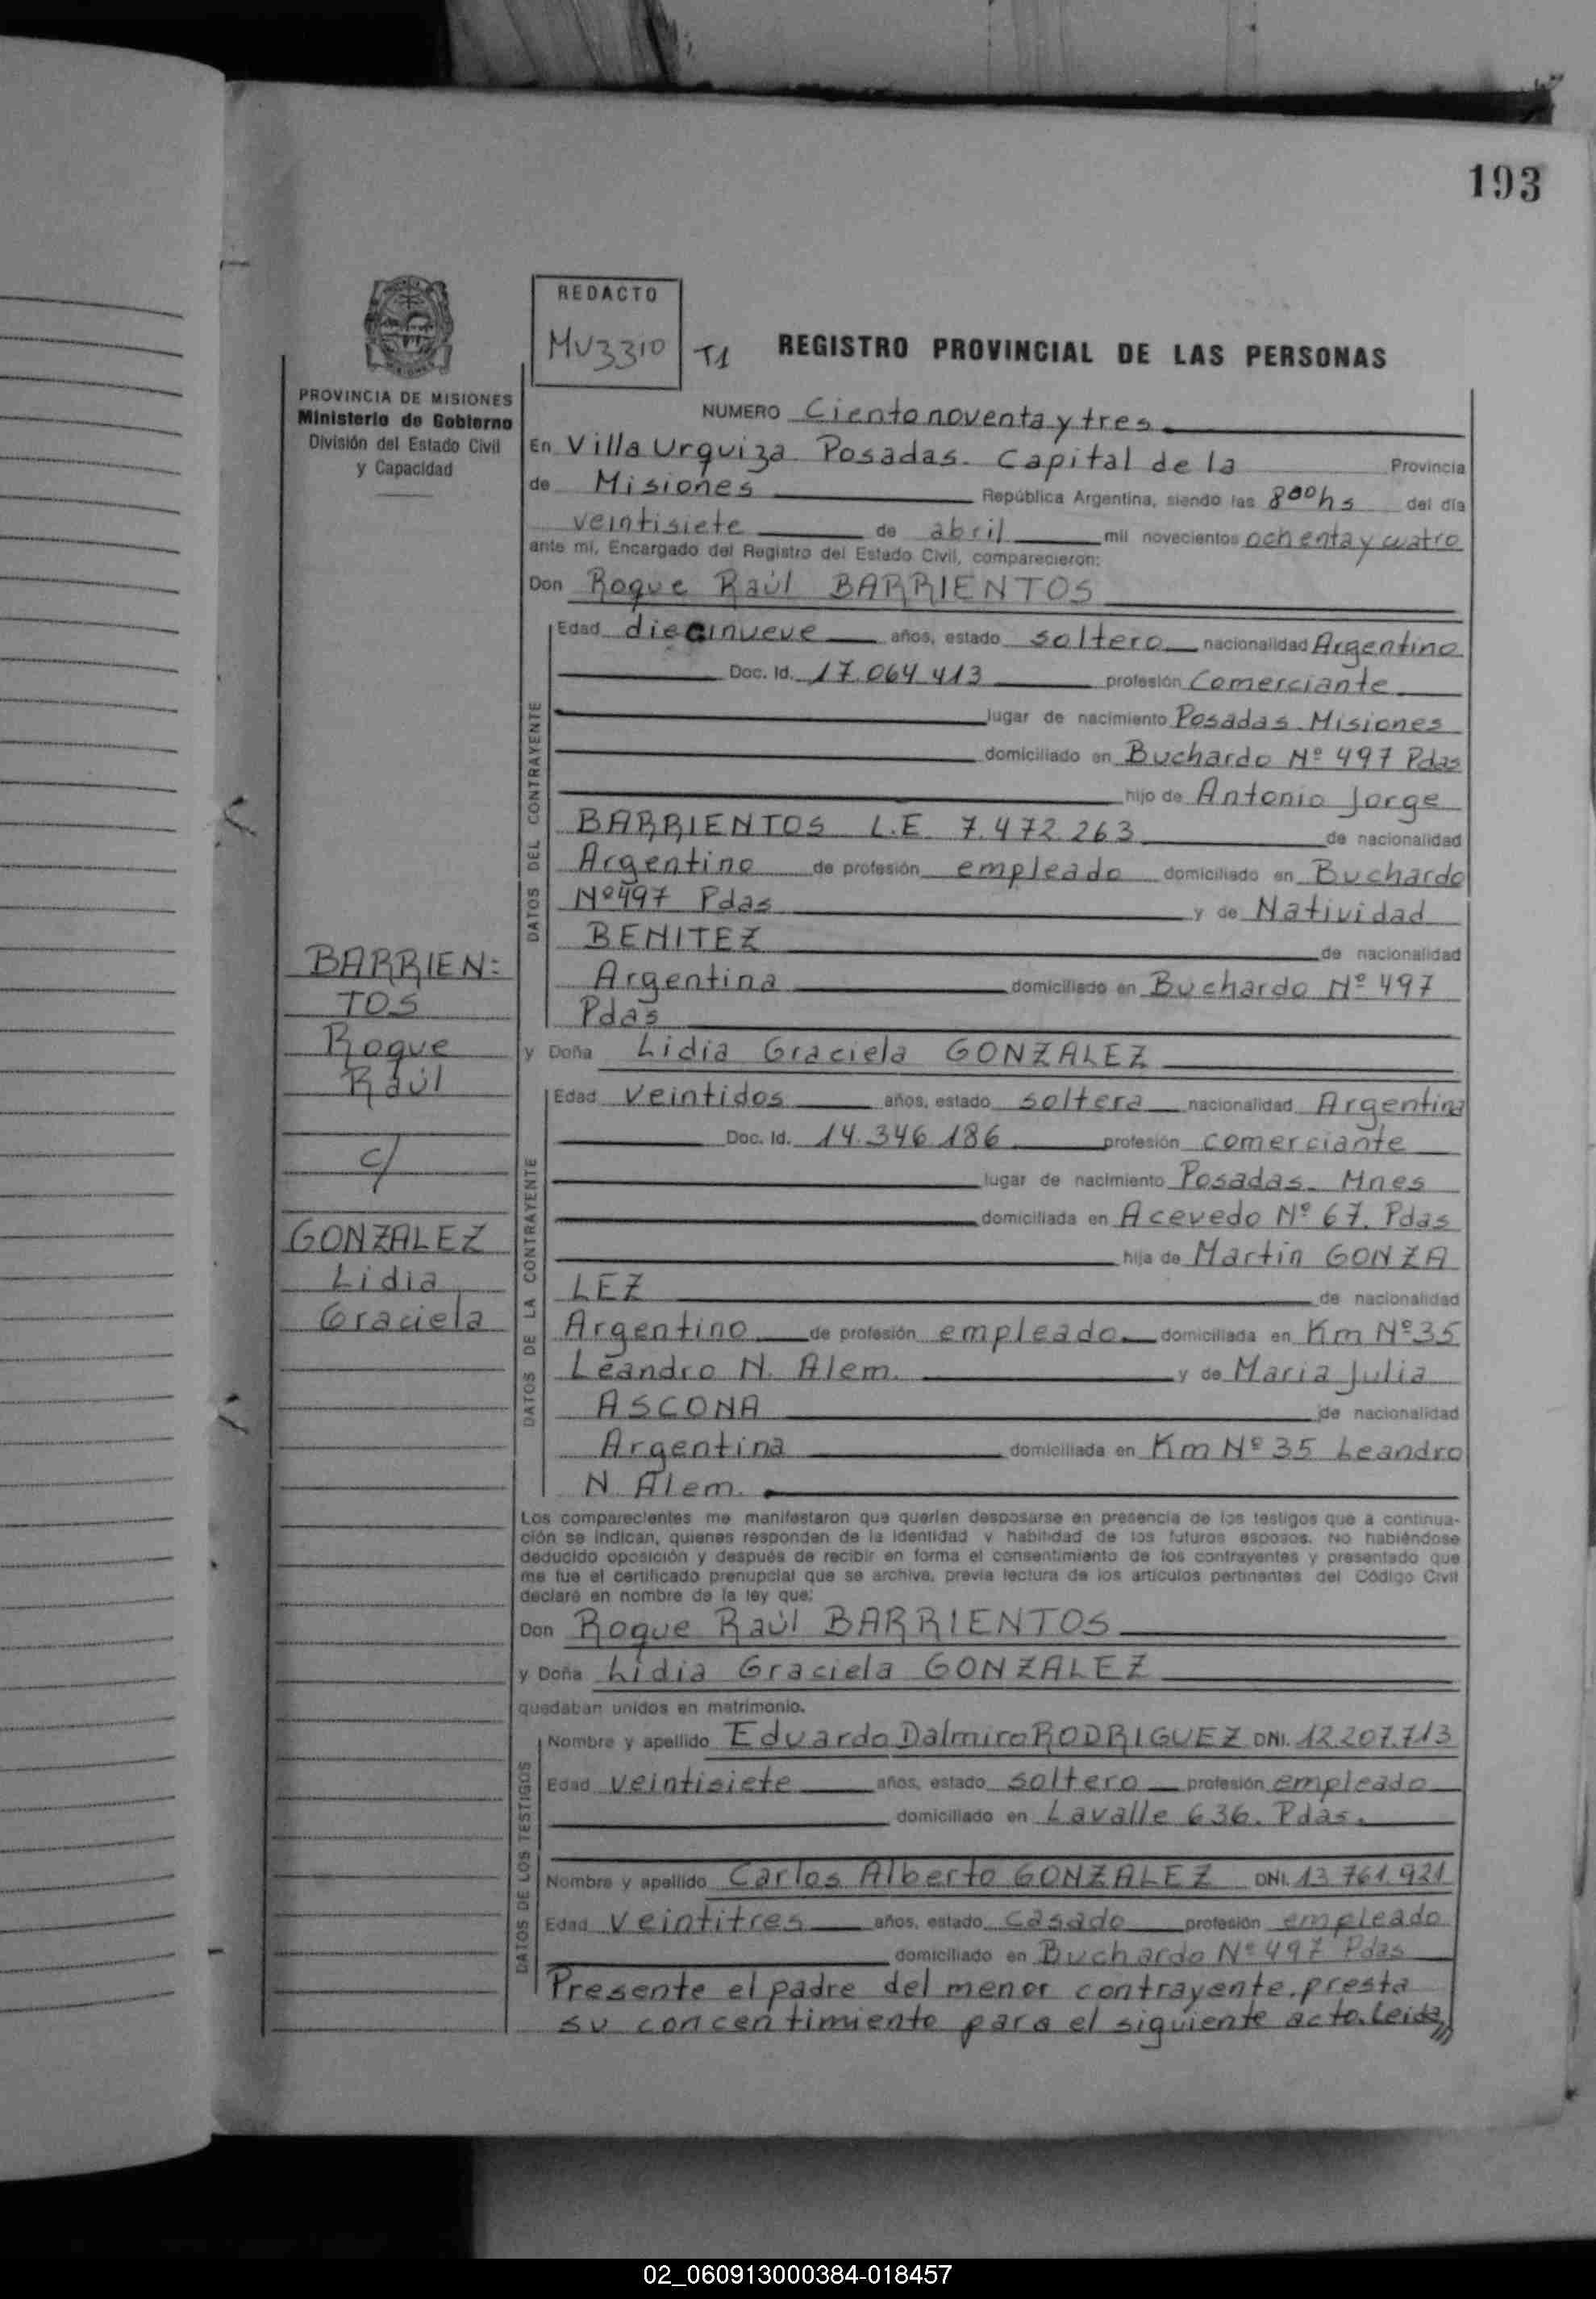 193
REDACTO
MU3310 T1
REGISTRO PROVINCIAL DE LAS PERSONAS
PROVINCIA DE MISIONES
Ministerio de Gobierno
División del Estado Civil
y Capacidad
NUMERO Ciento noventa y tres
En Villa Urquiza. Posadas. Capital de la Provincia
de Misiones República Argentina, siendo las 8⁰⁰hs del día
veintisiete de abril mil novecientos ochenta y cuatro
ante mí, Encargado del Registro del Estado Civil, comparecieron:
Don Roque Raúl BARRIENTOS
DATOS DEL CONTRAYENTE
Edad diecinueve años, estado soltero nacionalidad Argentino
Doc. Id. 17.064.413 profesión Comerciante
lugar de nacimiento Posadas. Misiones
domiciliado en Buchardo Nº 497 Pdas
hijo de Antonio Jorge
BARRIENTOS L.E. 7.472.263 de nacionalidad
Argentino de profesión empleado domiciliado en Buchardo
Nº497 Pdas y de Natividad
BENITEZ de nacionalidad
Argentina domiciliado en Buchardo Nº 497
Pdas
BARRIEN=
TOS
Roque
Raúl
c/
GONZALEZ
Lidia
Graciela
y Doña Lidia Graciela GONZALEZ
DATOS DE LA CONTRAYENTE
Edad veintidos años, estado soltera nacionalidad Argentina
Doc. Id. 14.346.186 profesión comerciante
lugar de nacimiento Posadas. Mnes
domiciliada en Acevedo Nº 67. Pdas
hija de Martin GONZA
LEZ de nacionalidad
Argentino de profesión empleado domiciliada en Km Nº35
Leandro N. Alem. y de Maria Julia
ASCONA de nacionalidad
Argentina domiciliada en Km Nº 35 Leandro
N. Alem.
Los comparecientes me manifestaron que querían desposarse en presencia de los testigos que a continua-
ción se indican, quienes responden de la identidad y habilidad de los futuros esposos. No habiéndose
deducido oposición y después de recibir en forma el consentimiento de los contrayentes y presentado que
me fue el certificado prenupcial que se archiva, previa lectura de los artículos pertinentes del Código Civil
declaré en nombre de la ley que:
Don Roque Raúl BARRIENTOS
y Doña Lidia Graciela GONZALEZ
quedaban unidos en matrimonio.
DATOS DE LOS TESTIGOS
Nombre y apellido Eduardo Dalmiro RODRIGUEZ DNI. 12.207.713
Edad veintisiete años, estado soltero profesión empleado
domiciliado en Lavalle 636. Pdas.
Nombre y apellido Carlos Alberto GONZALEZ DNI. 13.761.921
Edad veintitres años, estado casado profesión empleado
domiciliado en Buchardo Nº 497 Pdas
Presente el padre del menor contrayente. presta
su concentimiento para el siguiente acto. Leida
02_060913000384-018457